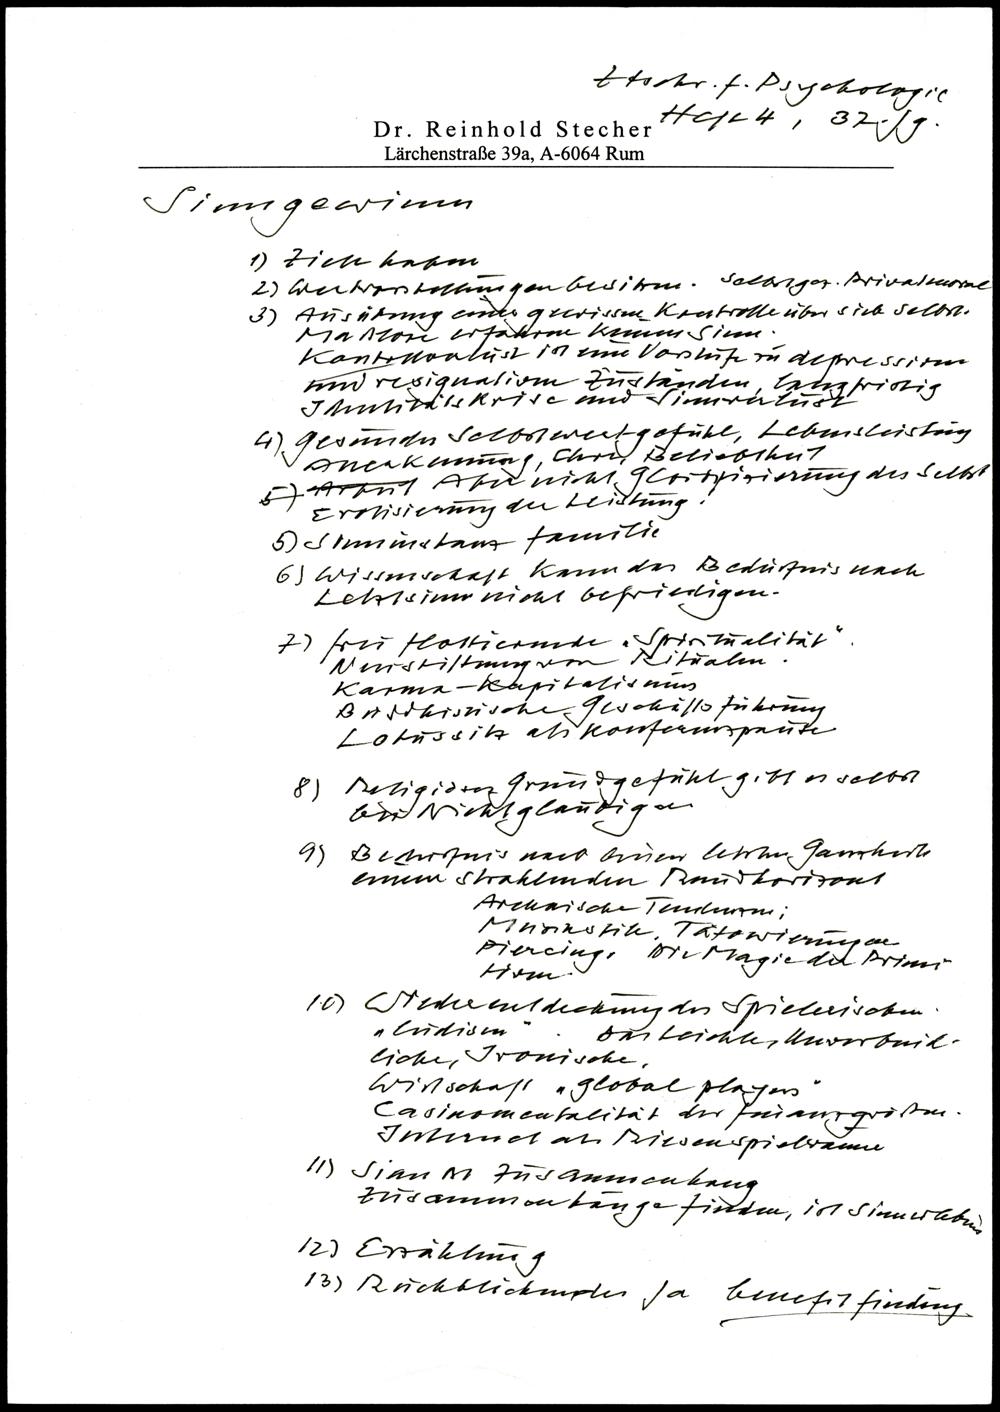 Ztschr. f. Psychologie
Heft 4, 32. Jg.
Dr. Reinhold Stecher
Lärchenstraße 39a, A-6064 Rum
Sinngewinn
1) Ziele haben
2) Wertvorstellungen besitzen. Selbstger. Privatmoral
3) Ausübung einer gewissen Kontrolle über sich selbst.
Maßlose erfahren keinen Sinn.
Kontrollverlust ist eine Vorstufe zu depressiven
und resignativen Zuständen, langfristig
Identitätskrise und Sinnverlust
4) Gesundes Selbstwertgefühl, Lebensleistung
Anerkennung, Ehre, Beliebtheit
5) Arbeit Aber nicht Glorifizierung des Selbst
Erotisierung der Leistung.
5) Sinninstanz Familie
6) Wissenschaft kann das Bedürfnis nach
Letztsinn nicht befriedigen.
7) frei flottierende „Spiritualität".
Neustiftung von Ritualen.
Karma-Kapitalismus
Buddhistische Geschäftsführung
Lotussitz als Konferenzpause
8) Religiöses Grundgefühl gibt es selbst
bei Nichtgläubigen
9) Bedürfnis nach einer letzten Ganzheit
einem strahlenden Rundhorizont
Archaische Tendenzen;
Tätowierungen
Piercing. Die Magie der Primi
tiven.
10) Wiederentdeckung des Spielerischen.
„Ludisen" . Das Leichte, Unverbind-
liche, Ironische,
Wirtschaft „global players"
Casinomentalität der Finanzgrößen.
Internet als Riesenspielwiese
11) Sinn ist Zusammenhang
Zusammenhänge finden, ist Sinnerlebnis
12) Erzählung
13) Rückblickendes Ja benefit finding